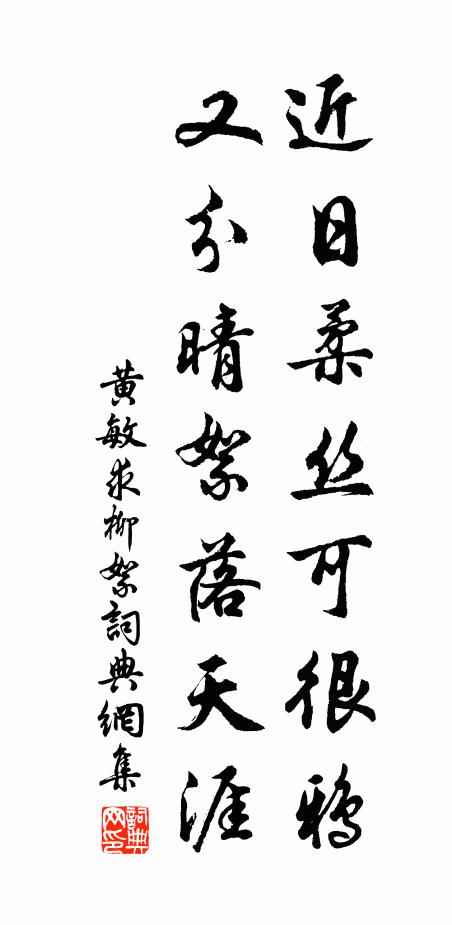 近日柔丝可很鸦
又分晴絮落天涯
黄敏求柳絮詞典網集
詞典網印